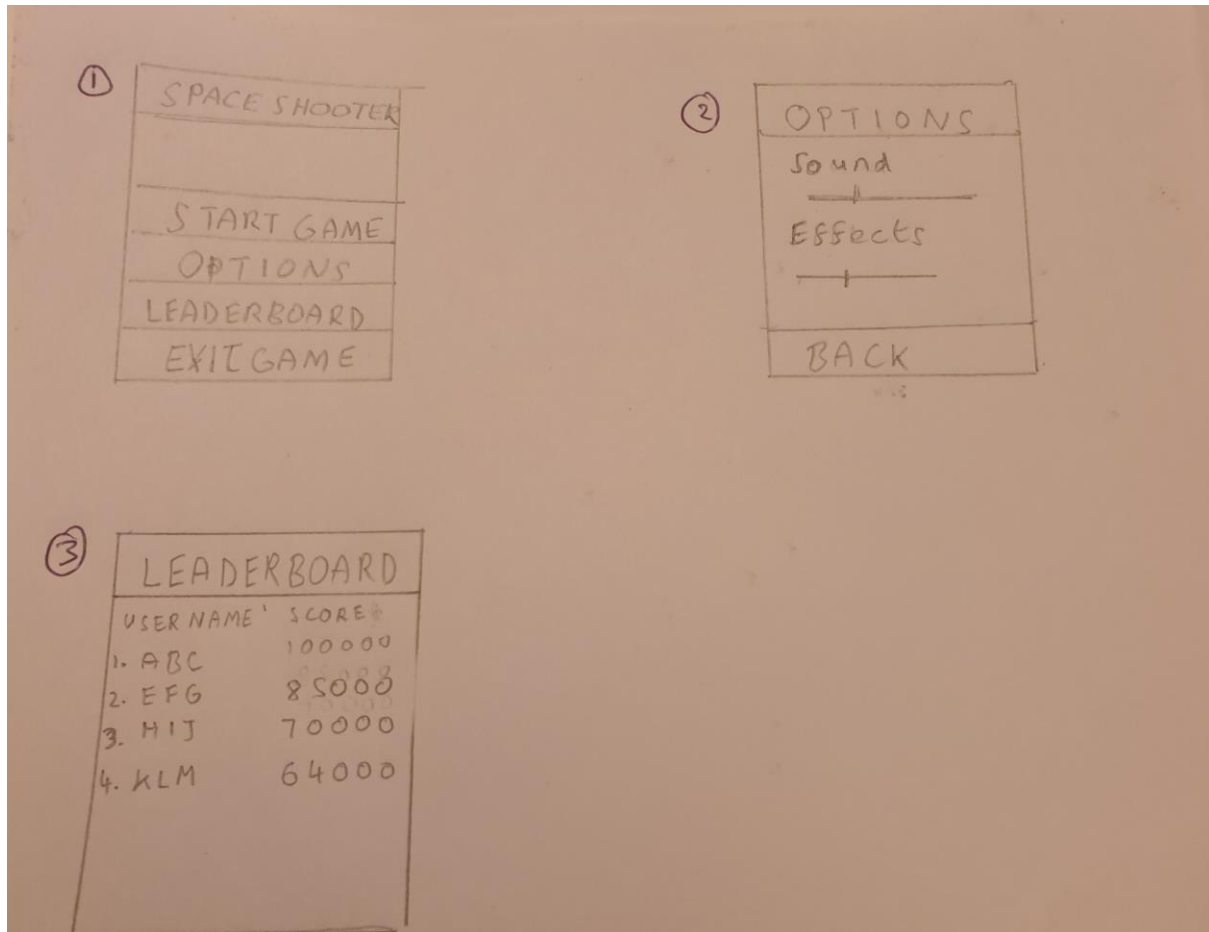 1
SPACE SHOOTER
START GAME
OPTIONS
LEADERBOARD
EXIT GAME
2
OPTIONS
Sound
Effects
BACK
3
LEADERBOARD
USERNAME SCORE
1. ABC 100000
2. EFG 85000
3. HIJ 70000
4. KLM 64000